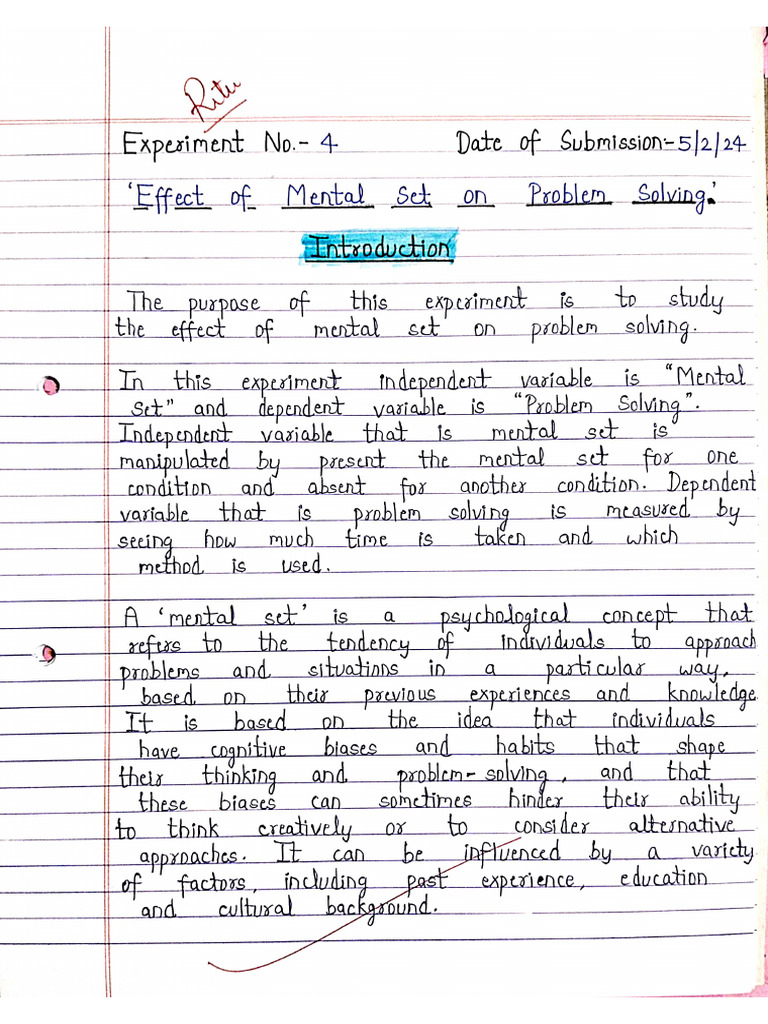 Ritu
Experiment No.- 4 Date of Submission:- 5/2/24
'Effect of Mental Set on Problem Solving.'
Introduction
The purpose of this experiment is to study
the effect of mental set on problem solving.
In this experiment independent variable is "Mental
Set" and dependent variable is "Problem Solving".
Independent variable that is mental set is
manipulated by present the mental set for one
condition and absent for another condition. Dependent
variable that is problem solving is measured by
seeing how much time is taken and which
method is used.
A 'mental set' is a psychological concept that
refers to the tendency of individuals to approach
problems and situations in a particular way,
based on their previous experiences and knowledge
It is based on the idea that individuals
have cognitive biases and habits that shape
their thinking and problem-solving, and that
these biases can sometimes hinder their ability
to think creatively or to consider alternative
approaches. It can be influenced by a variety
of factors, including past experience, education
and cultural background.